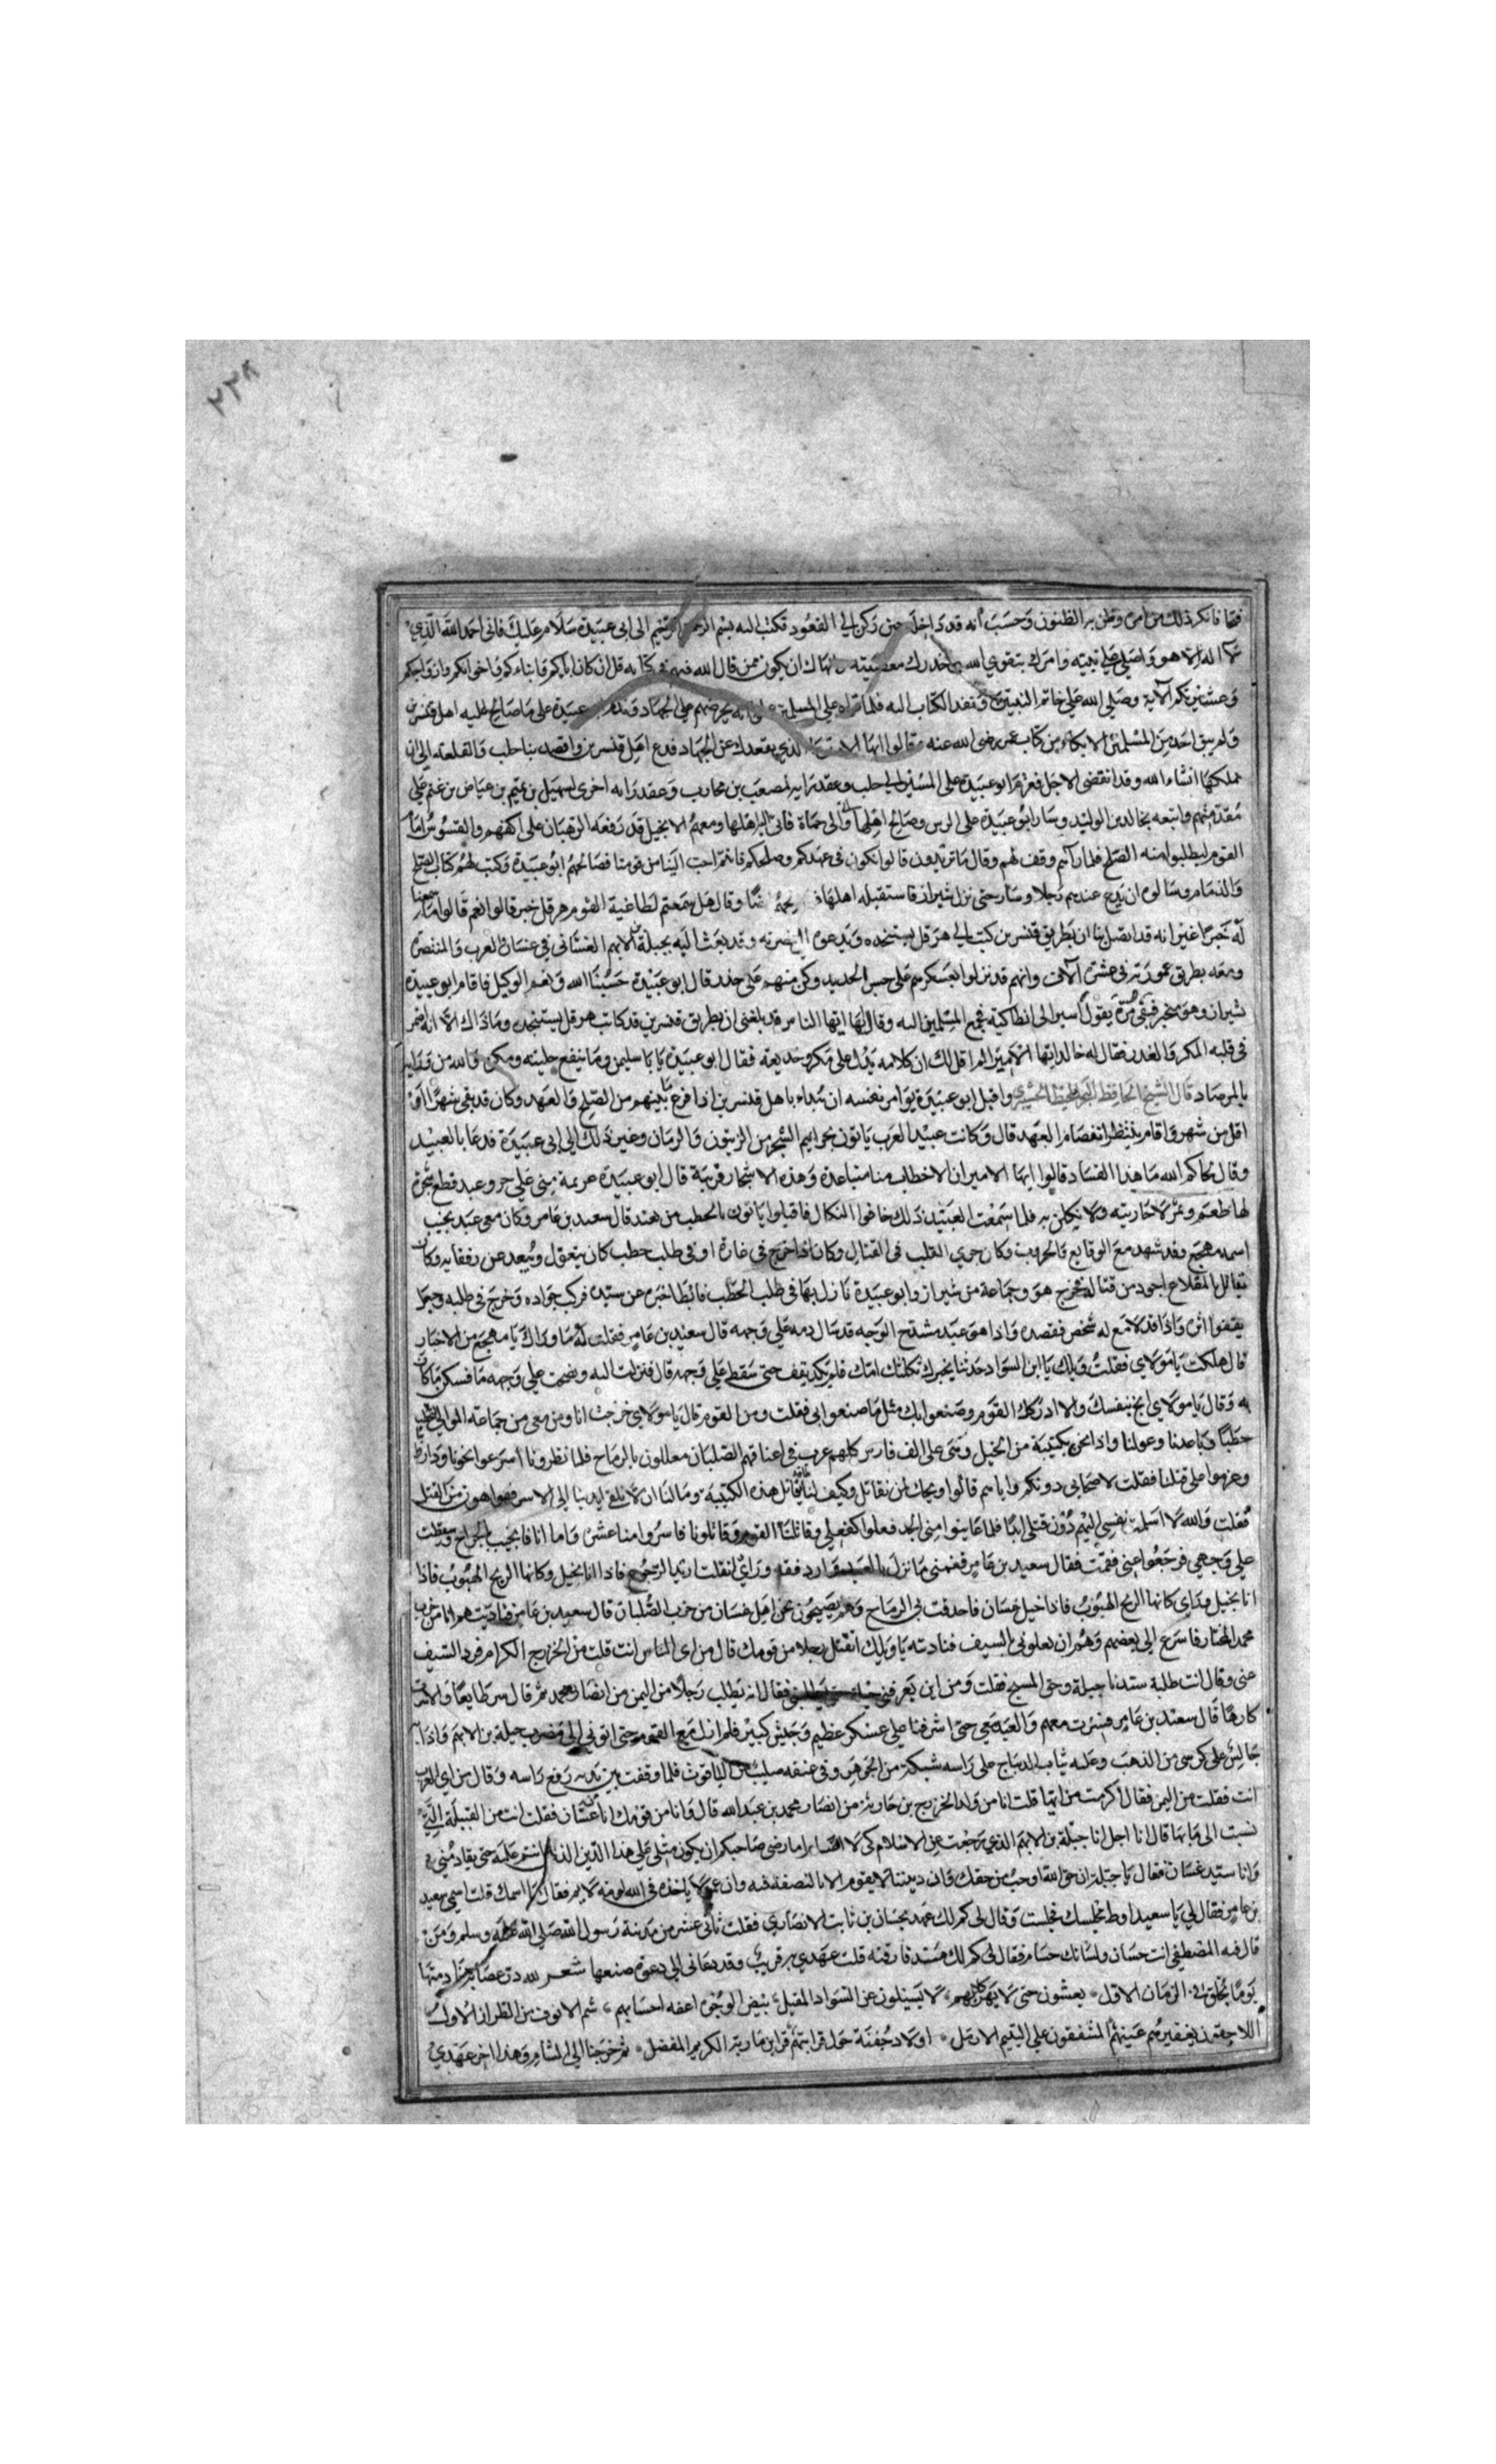 فقا فانكر ذلك من امره وظن به الظنون وحسب أنه قد داخله جبن وركن الي القعود فكتب اليه بسم الرحمن الرحيم الى ابى عبيدة سلام عليك فانى احمد الله الذي
لا اله الا هو واصلي علي نبيه وامرك بتقوي الله واحذرك معصيته وانهاك ان يكون ممن قال الله فيهم في كتابه قل ان كان اباكم وابناءكم واخوانكم وازواجكم
وعشيرتكم الآية وصلي الله علي خاتم النبيين ونفد الكتاب اليه فلما قراه علي المسلمين علموا انه يحرضهم علي الجهاد وندم ابو عبيدة على ما صالح عليه اهل قنسرين
ولم يبق احد من المسلمين الا بكاء من كتاب عمر رضى الله عنه وقالوا ايها الامير ما الذي يقعدك عن الجهاد فدع اهل قنسرين واقصد بنا حلب والقلعه الى ان
يملكها انشاء الله وقد انقضى الاجل فعزم ابو عبيدة على المسير الي حلب وعقد راية لمصعب بن محارب وعقد راية اخرى لسهيل بن عتم بن عياض بن غنم علي
مقدمتهم واتبعه بخالد بن الوليد وسار ابو عبيدة على الرس وصالح اهلها واتى الى حماة فاتى اليه اهلها ومعهم الانجيل قد رفعه الرهبان على اكفهم والقسوس امام
القوم ليطلبوا منه الصلح فلما رآهم وقف لهم وقال ما تريدون قالوا نكون في عهدكم وصلحكم فانتم احب الينا من قومنا فصالحهم ابو عبيدة وكتب لهم كتاب الصلح
والذمام وسالوه ان يدع عندهم رجلا وسار حتى نزل شيراز فاستقبله اهلها وقال هل سمعتم لطاغية القوم هرقل خبر قالوا نعم قالوا ما سمعنا
له خبرا غير انه قد اتصل بنا ان بطريق قنسرين كتب الي هرقل يستنجده ويدعوه الي نصرته وقد بعث اليه بجبلة بن الايهم الغساني في غسان العرب والمتنصرة
ومعه بطريق عمورية في عشرة آلاف وانهم قد نزلوا بعسكرهم على جسر الحديد وكن منهم على حذر قال ابو عبيدة حسبنا الله ونعم الوكيل فاقام ابو عبيدة
شيراز وهو متحير فبقى مرة يقول اسير الى انطاكية فجمع المسلمين اليه وقال لها ايها الناس قد بلغنى ان بطريق قنسرين قد كاتب هرقل يستنجده وما ذاك الا انه اضمر
فى قلبه المكر والغدر فقال له خالد ايها الامير الم اقل لك ان كلامه يدل على مكر وخديعة فقال ابو عبيدة يا با سليمن وما ينفع حيلته ومكره والله من ورايه
بالمرصاد قال الشيخ الحافظ واقبل ابو عبيدة يوامر نفسه ان يبداء باهل قنسرين اذا فرغ ما بينهم من الصلح والعهد وكان قد بقى شهرا او
اقل من شهر واقام ينتظر انفصام العهد قال وكانت عبيد العرب ياتون بجراثيم الشجر من الزيتون والرمان وغير ذلك الى ابى عبيدة فدعا بالعبيد
وقال نحاكم الله ما هذا الفساد قالوا ايها الامير ان الاحطاب منا متباعدة وهذه الاشجار قريبة قال ابو عبيدة عزيمة منى علي حر وعبد قطع شجرة
لها طعم وثمر لا جازيته ولا نكلن به فلما سمعت العبيد ذلك خافوا النكال فاقبلوا ياتون بالحطب من بعد قال سعيد بن عامر وكان معى عبد نجيب
اسمه مهجع وقد شهد مع الوقايع والحروب وكان جري القلب في القتال وكان اذا خرج في غارة او في طلب حطب كان يتعقل ويبعد عن رفقايه وكان
يقاتل بالمقلاع اجود من قتاله فخرج هو وجماعة من شيراز وابو عبيدة نازل بها في طلب الحطب فابطا خبره عن سيده فركب جواده وخرج في طلبه وجعل
يقتفوا اثره واذا قد لاح له شخص فقصده واذا هو عبده مشدخ الوجه قد سال دمه علي وجهه قال سعيد بن عامر فقلت له ما وراك يا مهجع من الاخبار
قال هلكت يا مولاي فقلت ويلك يا ابن السوادء حدثنا بخبرك ثكلتك امك فلم يكد يقف حتى سقط علي وجهه قال فنزلت اليه ونضحت علي وجهه ما فسكن ما كان
به وقال يا مولاي انج بنفسك والا ادركك القوم وصنعوا بك مثل ما صنعوا بى فقلت ومن القوم قال يا مولاي خرجت انا ومن معى من جماعته الموالى لنحتطب
حطبا وتباعدنا وعولنا واذا نحن بكتيبة من الخيل وتنهى على الف فارس كلهم عرب في اعناقهم الصلبان معللون بالرماح فلما نظرونا اسرعوا نحونا وداروا
وعزموا على قتلنا فقلت لاصحابى دونكم واياهم قالوا ويحك لمن نقاتل وكيف لنا طاقة نقاتل هذه الكتيبة وما لنا ان لا نلقى ايدينا الى الاسر فهو اهون من القتل
فقلت والله لا اسلمت نفسي اليهم دون قتلي ابدا فلما عاينوا منى الجد فعلوا كفعلي وقاتلنا القوم وقاتلونا فاسروا منا عشرة واما انا فانجب بالجراح وسقطت
علي وجهي فرجعوا عنى فقمت فقال سعيد بن عامر فغمنى ما نزل بالعبيد وراي انقلت اريد الرجوع فاذا انا بخيل وكانها الريح الهبوب فاذا
انا بخيل وراي كانها الريح الهبوب فاذا خيل غسان فاحدقت بى الرماح وهم يصيحون نحن اهل غسان من حزب الصلبان قال سعيد بن عامر فناديت هم انا من حزب
محمد المختار فاسرع الي بعضهم وهم ان يعلونى بالسيف فناديته يا ويلك اتقتل رجلا من قومك قال من اى الناس انت قلت من الخزرج الكرام فرد السيف
عنى وقال انت طلبة سيدنا جبلة وحق المسيح فقلت ومن اين يعرفنى فقال انه يطلب رجلا من اليمن من انصار محمد ثم قال سر طايعا والا سرت
كارها قال سعيد بن عامر فسرت معهم والعبد معي حتى اشرفنا علي عسكر عظيم وجيش كبير فلم ازل مع القوم حتى اتوا بى الى مضرب جبلة بن الايهم واذا به
جالس على كرسى من الذهب وعليه ثياب الديباج على راسه شبكة من الجوهر وفى عنقه صليب من الياقوت فلما وقفت بين يديه رفع راسه وقال من اي العرب
انت فقلت من اليمن فقال اكرمت من ايها قلت انا من ولد الخزرج بن حارثة من انصار محمد بن عبد الله قال وانا من قومك انا غسان فقلت انت من القبيلة التي
نسبت الى مايها قال انا اجل انا جبلة بن الايهم الذي رجعت عن الاسلام كى لا اما رضى صاحبكم ان يكون مثلى علي هذا الدين الذى انتم عليه حتى يقاد منى
وانا سيد غسان فقال يا جبلة ان حق الله اوجب من حقك وان ديننا لا يقوم الا بالنصفة فيه وان عمر لا ياخذه في الله لومة لايم فقال لى ما اسمك قلت اسمي سعيد
بن عامر فقال لي يا سعيد اوطا بمجلسك فجلست وقال لى كم لك عهد بحسان بن ثابت الانصاري فقلت ثانى عشر من مدينة رسول الله صلى الله عليه وسلم ومن
قال فيه المصطفي انت حسان ولسانك حسام فقال لى كم لك منذ فارقته قلت عهدي به قريب وقد دعانى الى دعوة صنعها شعر لله در عصابة نادمتها
يوما بجلق فى الزمان الاول يغشون حتى لا تهر كلابهم لا يسيلون عن السواد المقبل بيض الوجوه اعفه احسابهم شم الانوف من الطراز الاول
اللاحقين بفقيرهم غنيهم المشفقون علي اليتيم الارمل اولاد جفنة حول قرابتهم قرا بن مارية الكريم المفضل ثم خرجنا الي الشام وهذا اخر عهدي
٢٣٨